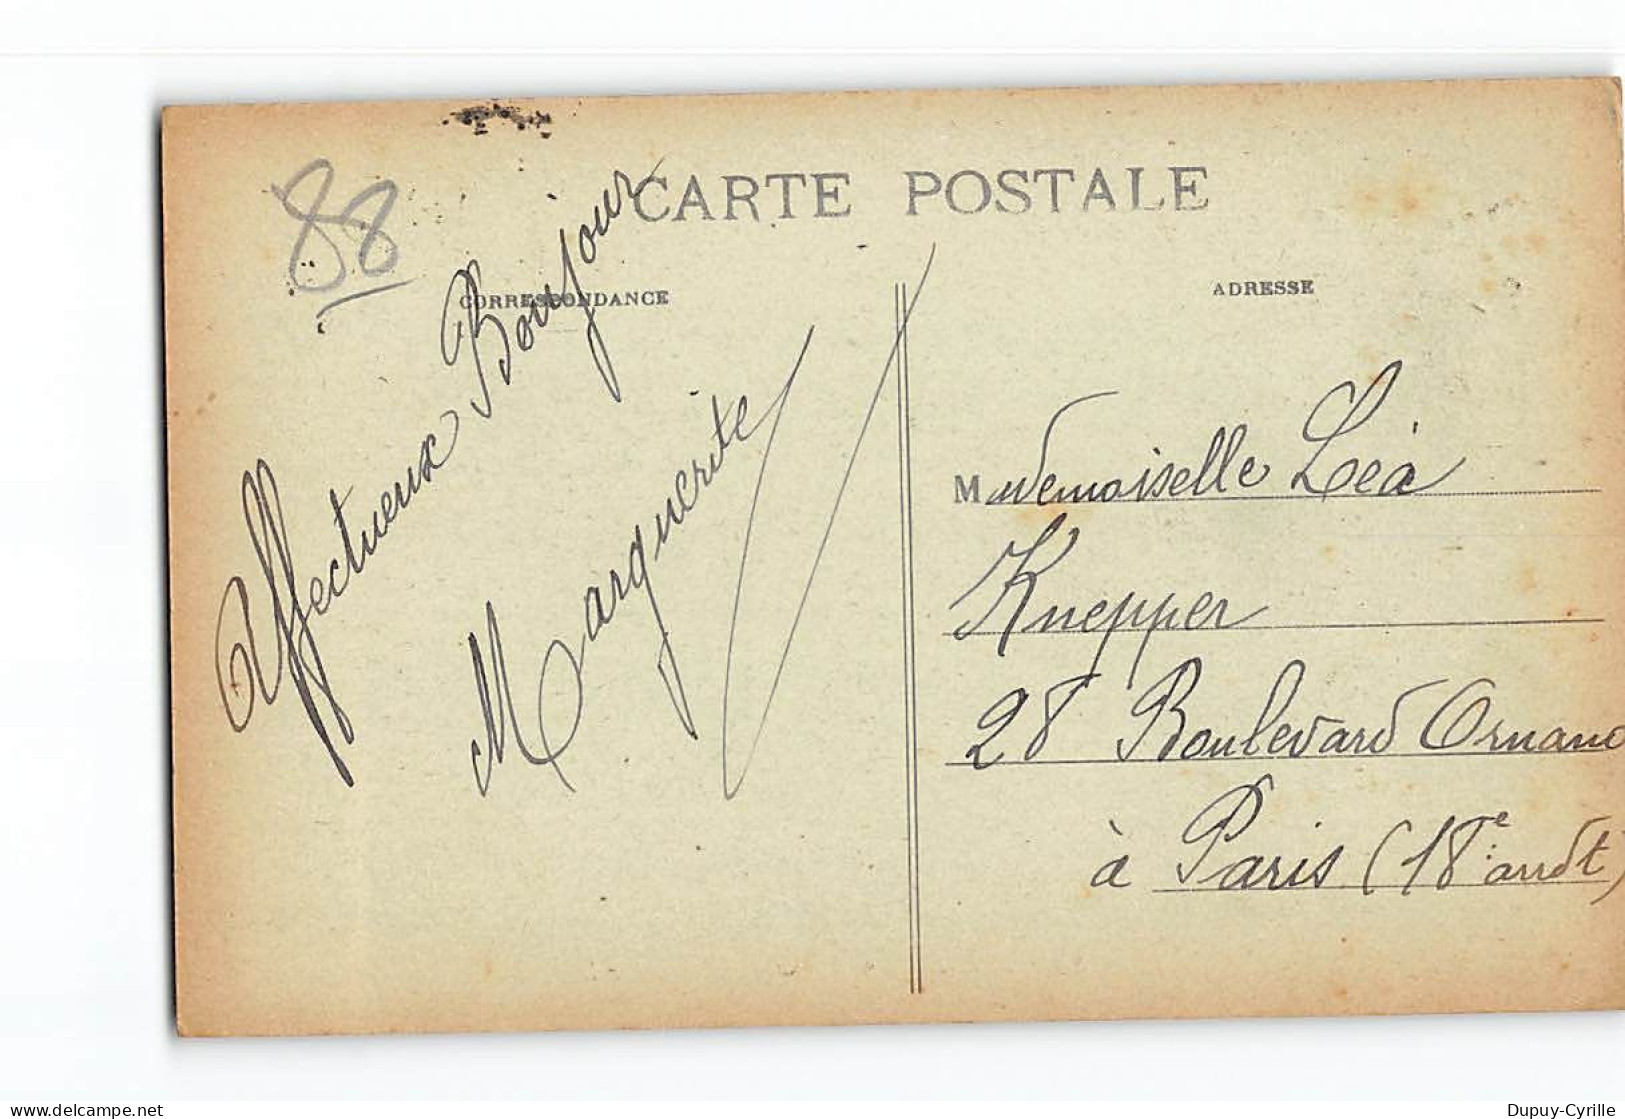 88
CARTE POSTALE
CORRESPONDANCE
ADRESSE
Affectueux Bonjour
Marguerite
Mademoiselle Léa
Knepper
28 Boulevard Ornano
à Paris (18e arrdt)
delcampe.net
Dupuy-Cyrille